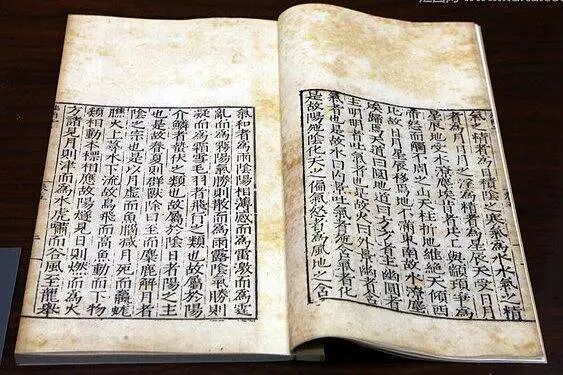 氣之精者為日積陰之寒氣為水水氣之精
者為月日月之淫為精者為星辰天受日月
星辰地受水潦塵埃昔者共工與顓頊爭為
帝怒而觸不周之山天柱折地維絕天傾西
北故日月星辰移焉地不滿東南故水潦塵
埃歸焉天道曰圓地道曰方方者主幽圓者
主明明者吐氣者也是故火曰外景幽者含
氣者也是故水曰內景吐氣者施含氣者化
是故陽施陰化天之偏氣怒者為風地之含
氣和者為雨陰陽相薄感而為雷激而為霆
亂而為霧陽氣勝則散而為雨露陰氣勝則
凝而為霜雪毛羽者飛行之類也故屬於陽
介鱗者蟄伏之類也故屬於陰日者陽之主
也是故春夏則群獸除日至而麋鹿解月者
陰之宗也是以月虛而魚腦減月死而蠃蛖
膲火上蕁水下流故鳥飛而高魚動而下物
類相動本標相應故陽燧見日則燃而為火
方諸見月則津而為水虎嘯而谷風至龍舉